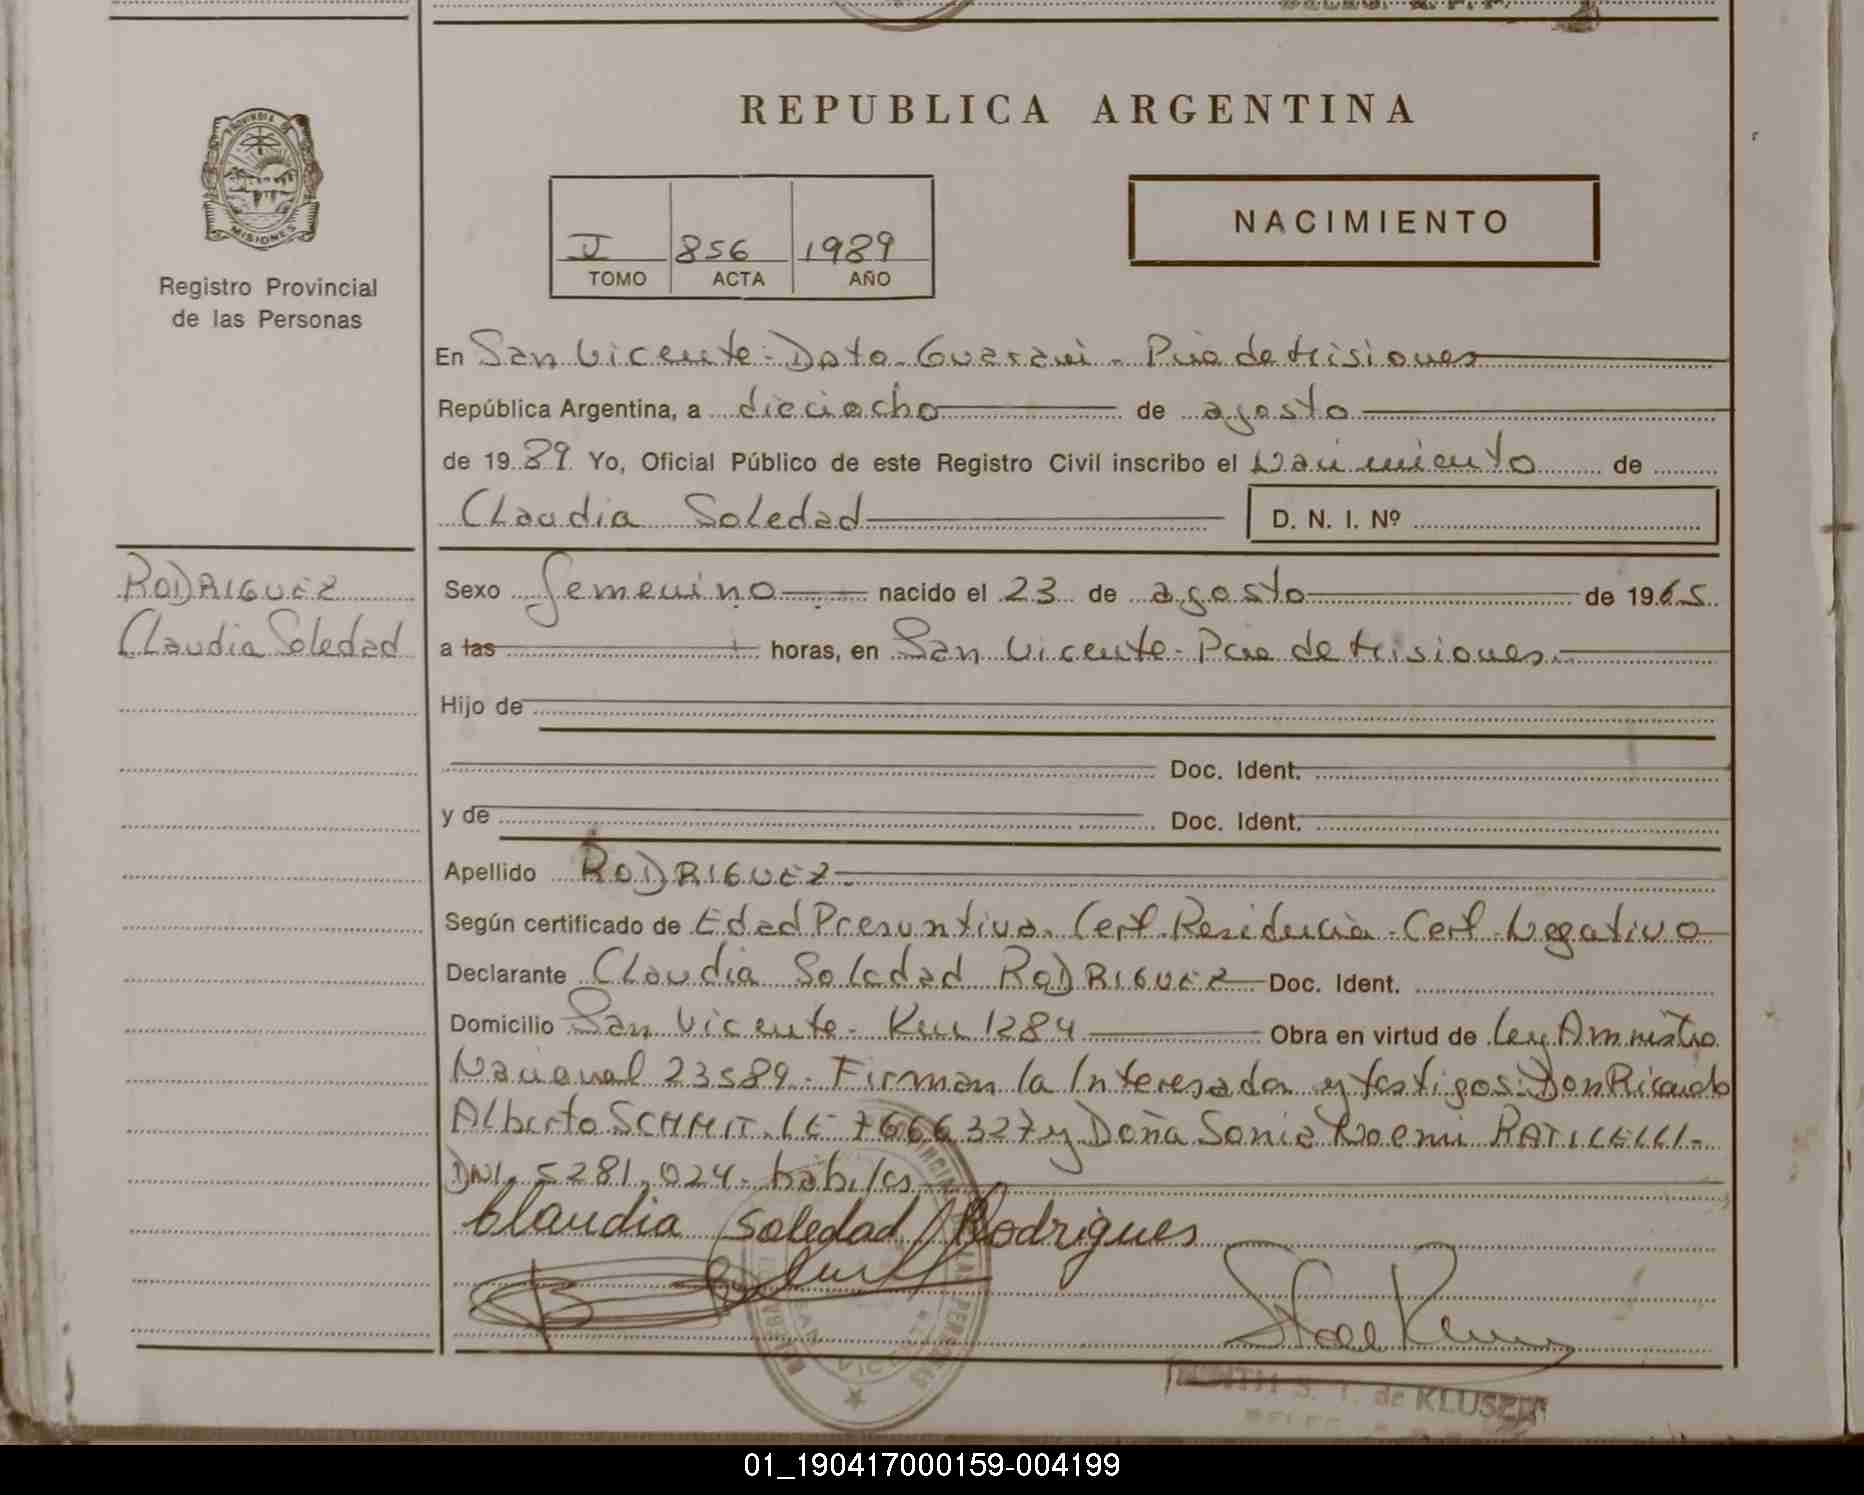 REPUBLICA ARGENTINA
PROVINCIA DE
MISIONES
Registro Provincial
de las Personas
856 1989
TOMO ACTA AÑO
NACIMIENTO
En San Vicente - Dpto - Guaraní - Pcia de Misiones
República Argentina, a dieciocho de agosto
de 1989 Yo, Oficial Público de este Registro Civil inscribo el Nacimiento de
Claudia Soledad D. N. I. Nº
RODRIGUEZ
Claudia Soledad
Sexo femenino nacido el 23 de agosto de 1965
a las horas, en San Vicente - Pcia de Misiones.
Hijo de
Doc. Ident.
y de Doc. Ident.
Apellido RODRIGUEZ
Según certificado de Edad Presuntiva. Cert. Residencia - Cert. Negativo
Declarante Claudia Soledad RODRIGUEZ Doc. Ident.
Domicilio San Vicente - Km 1284 Obra en virtud de Ley Amnistia
Nacional 23589. Firman la Interesada y testigos: Don Ricardo
Alberto SCHMIT. LE 7666327 y Doña Sonia Noemi
DNI. 5281.024 - habiles
Claudia Soledad Rodrigues
S. T. de KLUSZ
01_190417000159-004199